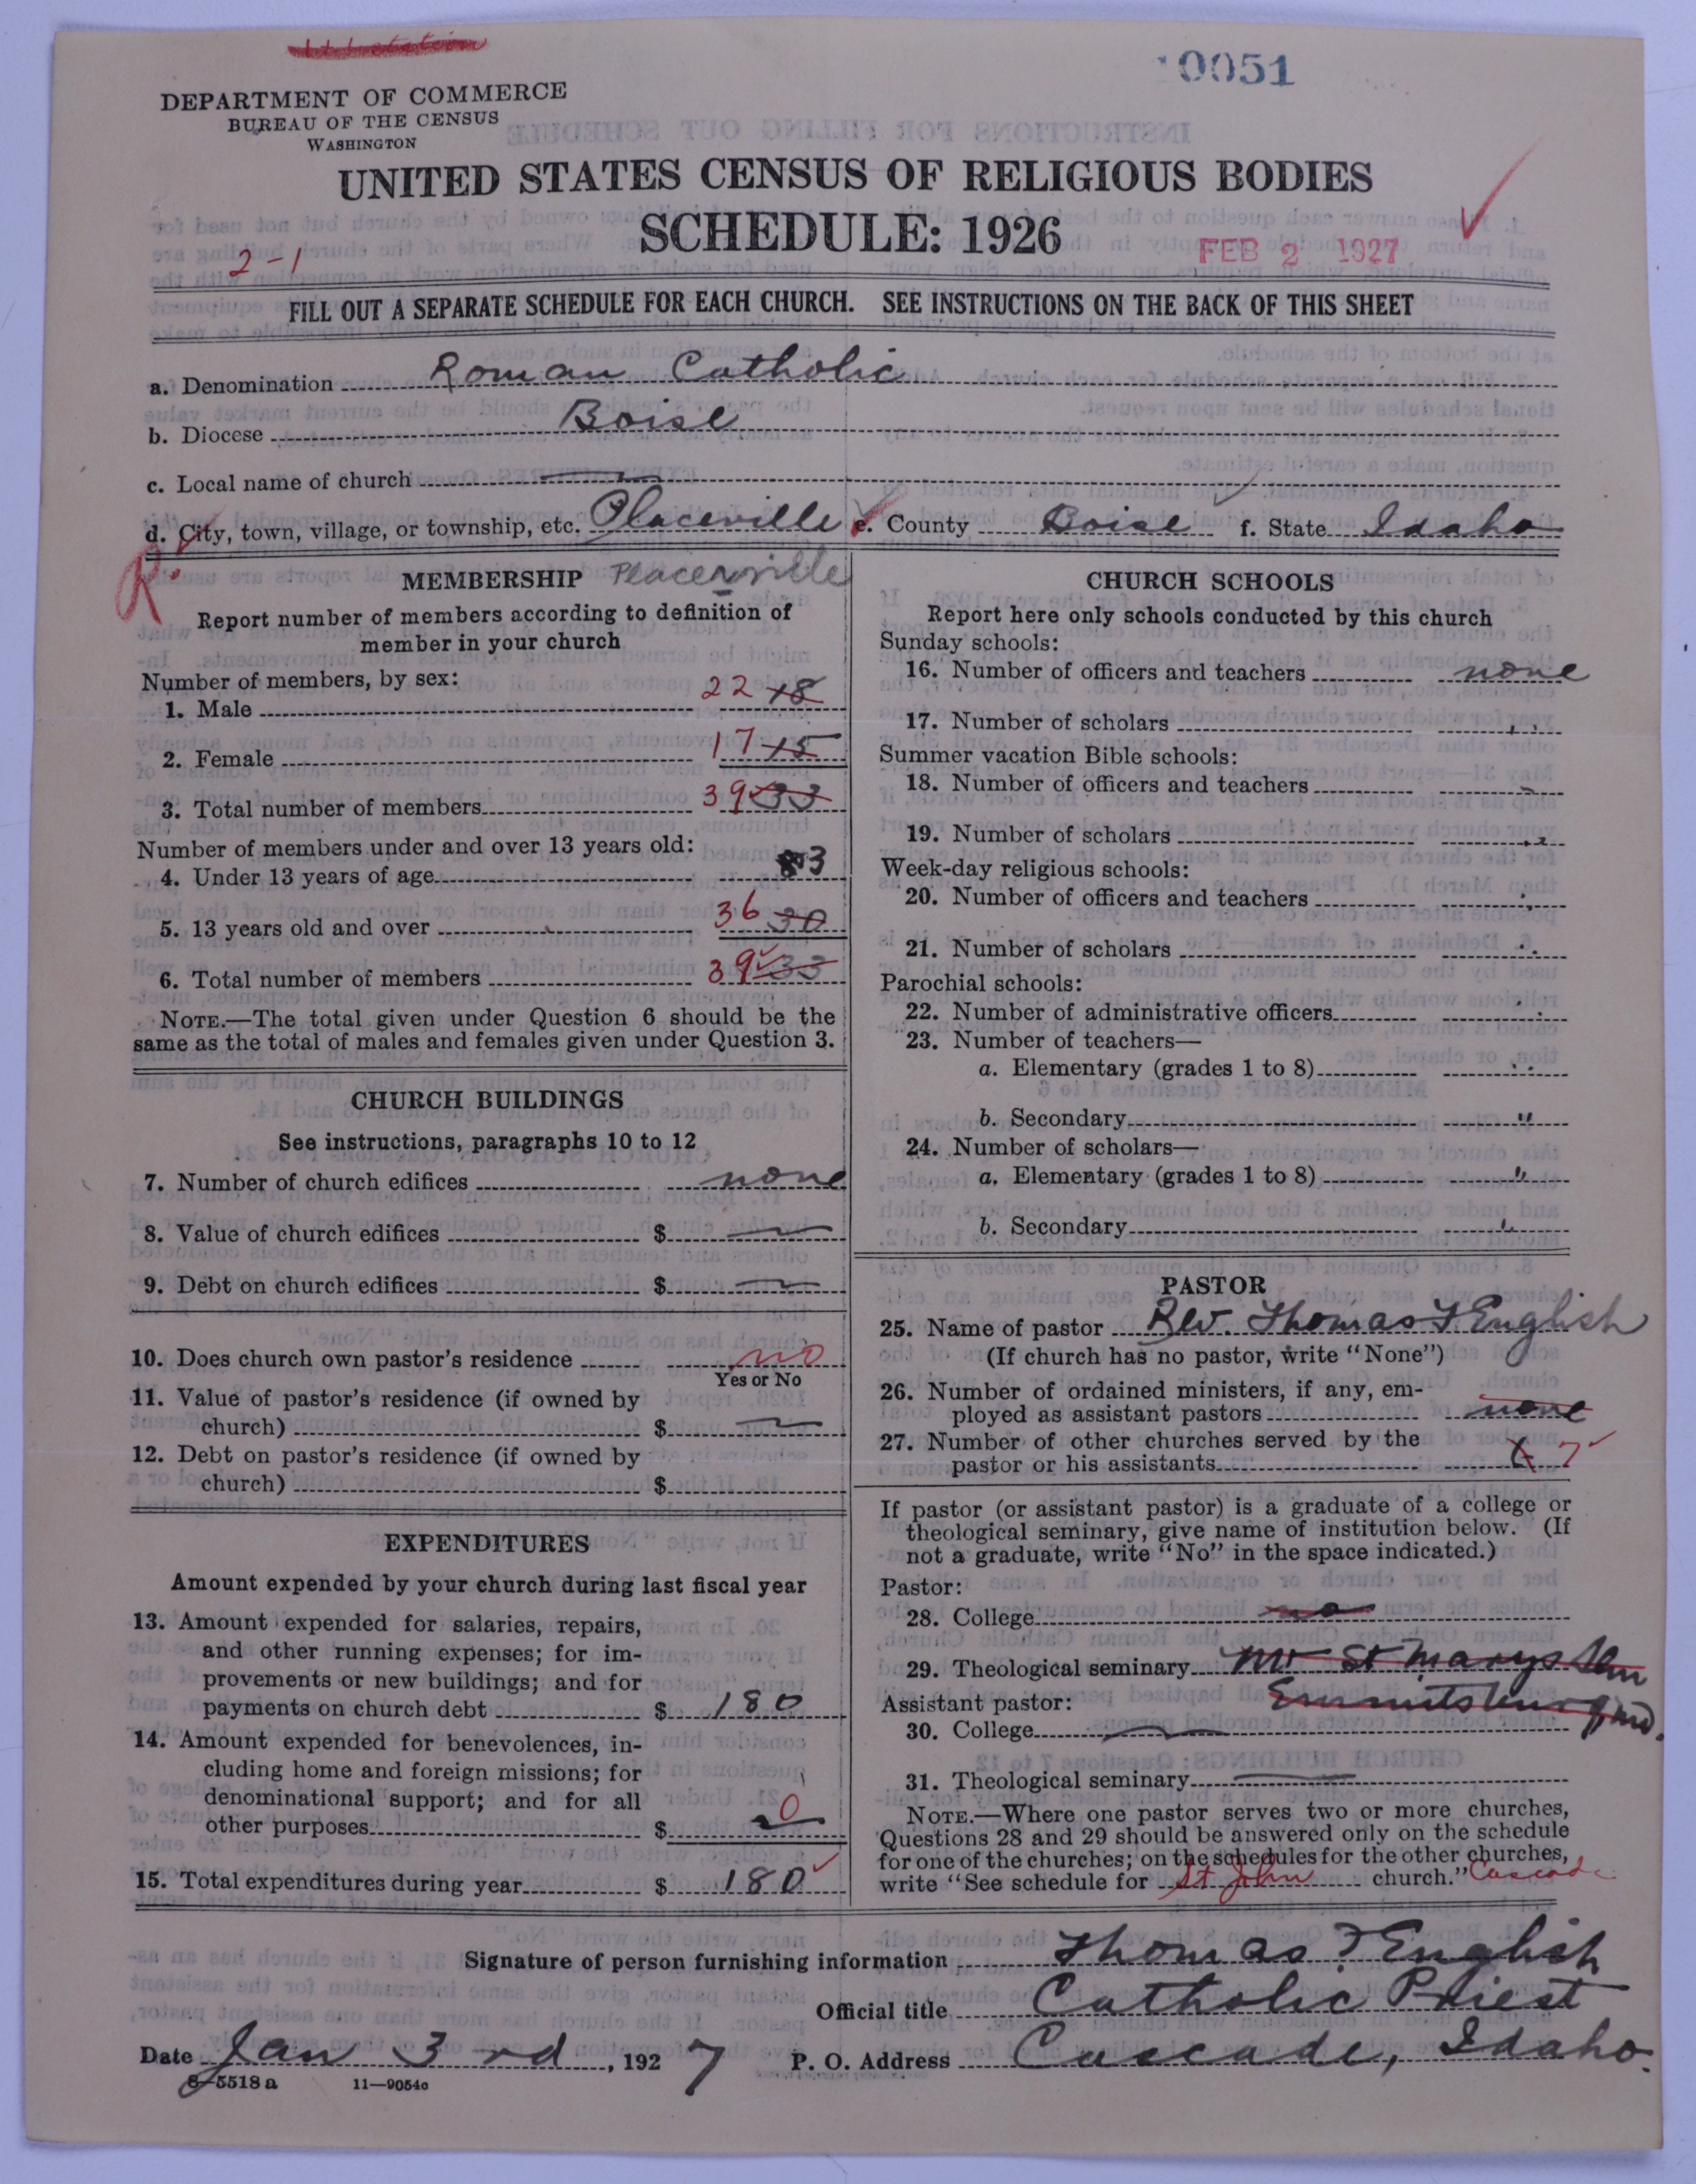 0051
DEPARTMENT OF COMMERCE
BUREAU OF THE CENSUS
WASHINGTON
UNITED STATES CENSUS OF RELIGIOUS BODIES
SCHEDULE: 1926
FEB 2 1927
2-1
FILL OUT A SEPARATE SCHEDULE FOR EACH CHURCH. SEE INSTRUCTIONS ON THE BACK OF THIS SHEET
a. Denomination Roman Catholic
b. Diocese Boise
c. Local name of church —
d. City, town, village, or township, etc. Placeville e. County Boise f. State Idaho
R
MEMBERSHIP Placerville
Report number of members according to definition of
member in your church
Number of members, by sex:
1. Male 22 18
2. Female 17 15
3. Total number of members 39 33
Number of members under and over 13 years old:
4. Under 13 years of age 3
5. 13 years old and over 36 30
6. Total number of members 39 33
NOTE.—The total given under Question 6 should be the
same as the total of males and females given under Question 3.
CHURCH BUILDINGS
See instructions, paragraphs 10 to 12
7. Number of church edifices none
8. Value of church edifices $ —
9. Debt on church edifices $ —
10. Does church own pastor's residence no
Yes or No
11. Value of pastor's residence (if owned by
church) $ —
12. Debt on pastor's residence (if owned by
church) $
EXPENDITURES
Amount expended by your church during last fiscal year
13. Amount expended for salaries, repairs,
and other running expenses; for im-
provements or new buildings; and for
payments on church debt $ 180
14. Amount expended for benevolences, in-
cluding home and foreign missions; for
denominational support; and for all
other purposes $ 0
15. Total expenditures during year $ 180
CHURCH SCHOOLS
Report here only schools conducted by this church
Sunday schools:
16. Number of officers and teachers none
17. Number of scholars "
Summer vacation Bible schools:
18. Number of officers and teachers "
19. Number of scholars "
Week-day religious schools:
20. Number of officers and teachers "
21. Number of scholars "
Parochial schools:
22. Number of administrative officers "
23. Number of teachers—
a. Elementary (grades 1 to 8) "
b. Secondary "
24. Number of scholars—
a. Elementary (grades 1 to 8) "
b. Secondary "
PASTOR
25. Name of pastor Rev. Thomas F English
(If church has no pastor, write "None")
26. Number of ordained ministers, if any, em-
ployed as assistant pastors none
27. Number of other churches served by the
pastor or his assistants 7
If pastor (or assistant pastor) is a graduate of a college or
theological seminary, give name of institution below. (If
not a graduate, write "No" in the space indicated.)
Pastor:
28. College no
29. Theological seminary Mt St Marys Sem
Emmitsburg Md.
Assistant pastor:
30. College —
31. Theological seminary —
NOTE.—Where one pastor serves two or more churches,
Questions 28 and 29 should be answered only on the schedule
for one of the churches; on the schedules for the other churches,
write "See schedule for St John church." Cascade
Signature of person furnishing information Thomas F English
Official title Catholic Priest
Date Jan 3rd, 1927 P. O. Address Cascade, Idaho.
8-5518 a 11—9054c